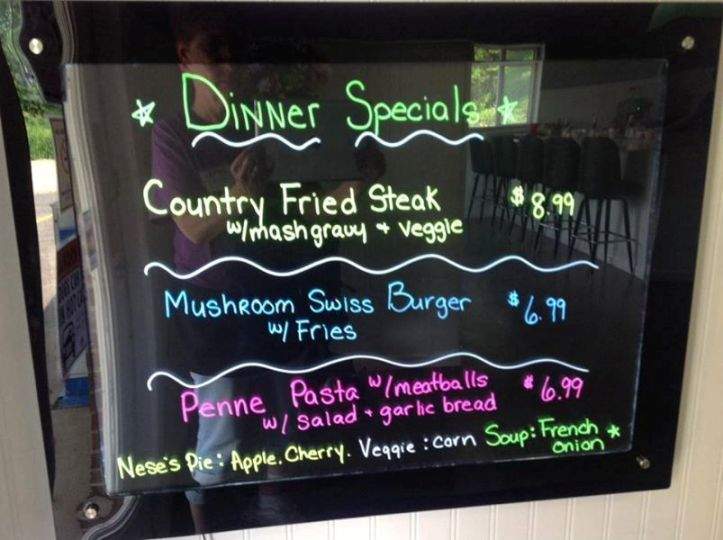 Dinner Specials
Country Fried Steak $8.99
w/mash gravy + veggie
Mushroom Swiss Burger $6.99
w/ Fries
Penne Pasta w/meatballs $6.99
w/ salad + garlic bread
Nese's Pie: Apple. Cherry. Veggie: corn Soup: French onion